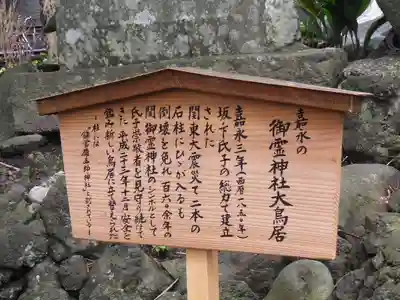 嘉永の
御霊神社大鳥居
嘉永三年(西暦一八五〇年)
坂ノ下氏子の総力で建立
された
関東大震災で二本の
石柱にひびが入るも
倒壊を免れ百六十余年の
間御霊神社のシンボルとして
氏子崇敬者を見守り続けて
きた平成二十三年十二月安全と
新しい鳥居に建て替えられた